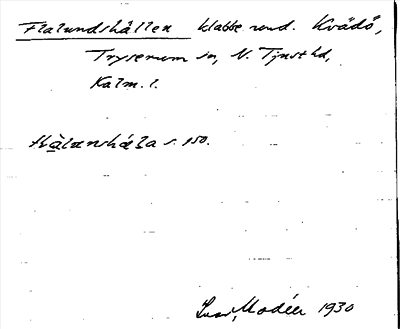 Flalundshällen klabbe nord. Kvädö,
Tryserum sn, N. Tjust hd,
Kalm. l.
s. 150.
Ivar Modéer 1930